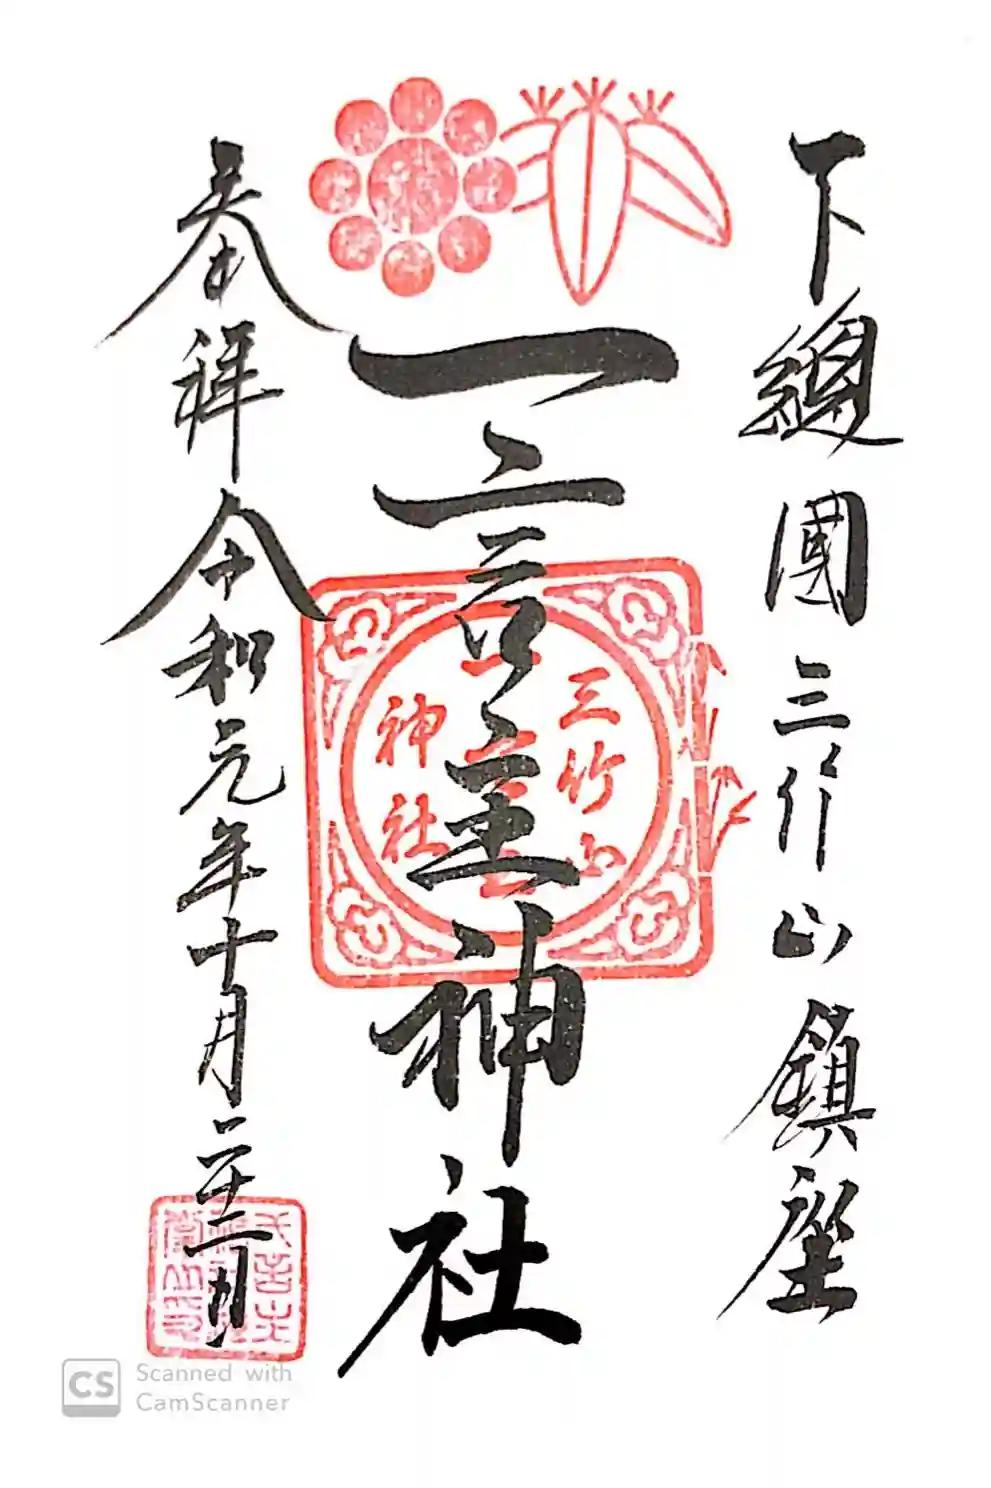 下總國三竹山鎮座
一言主神社
奉拝 令和元年十月二十二日
三竹山
一言主
神社
CS
Scanned with
CamScanner